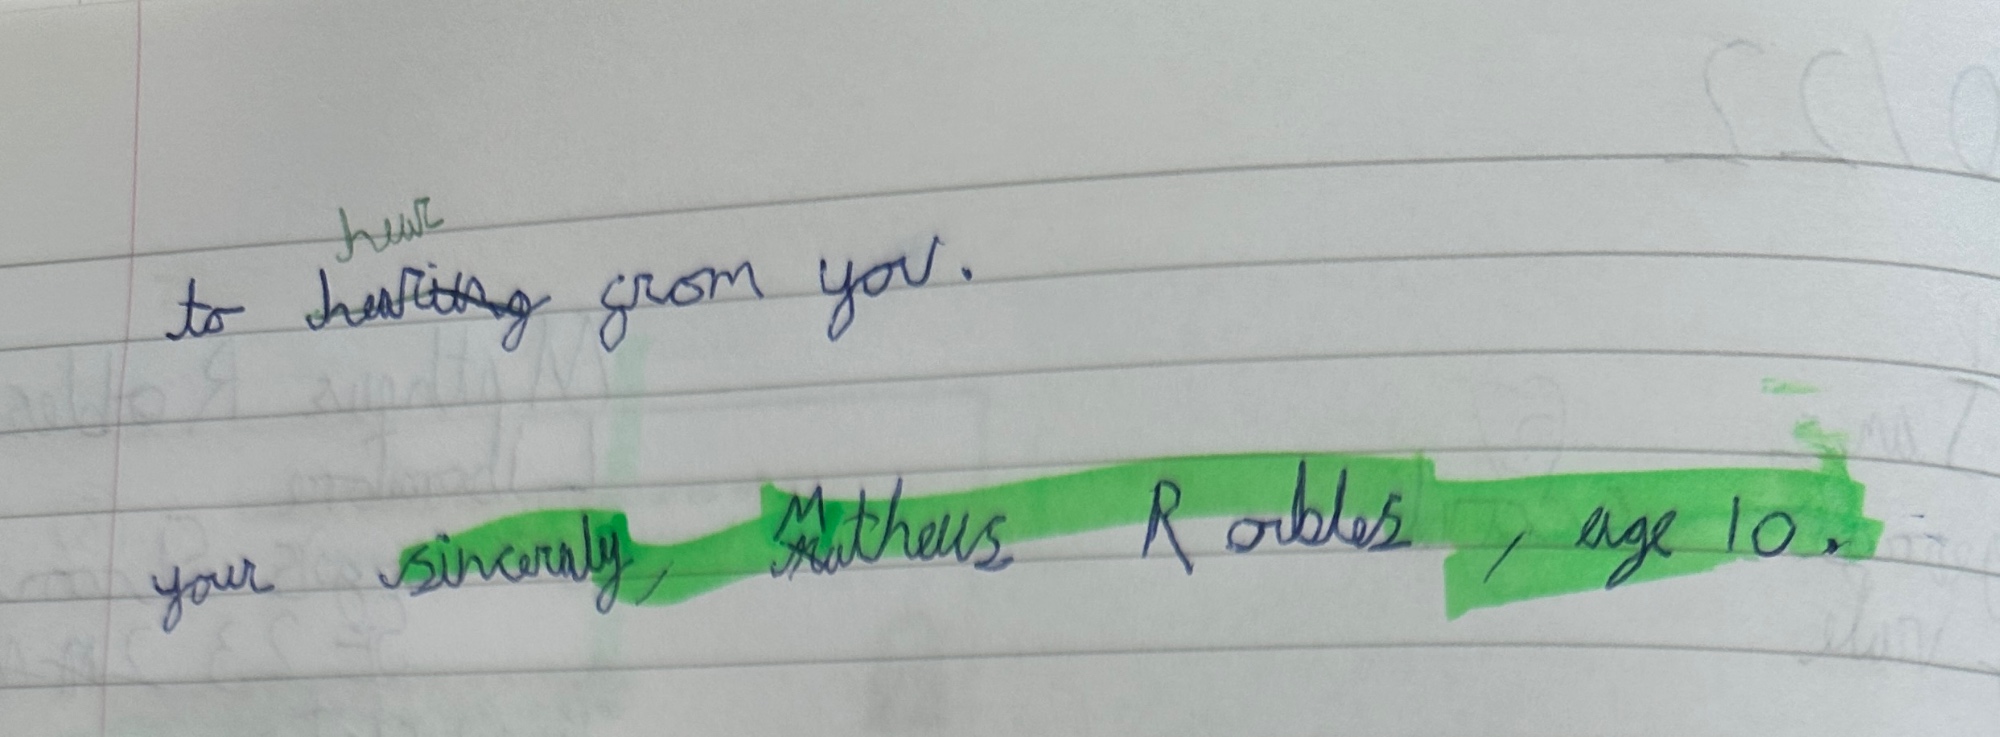 hear
to hearing from you.
your sincerely, Matheus Robles, age 10.